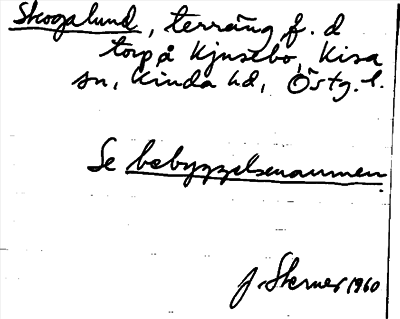 Skogalund, terräng f. d
torp å Kjusebo, Kisa
sn, Kinda hd, Östg. l.
Se bebyggelsenamnen
J. Sterner 1960